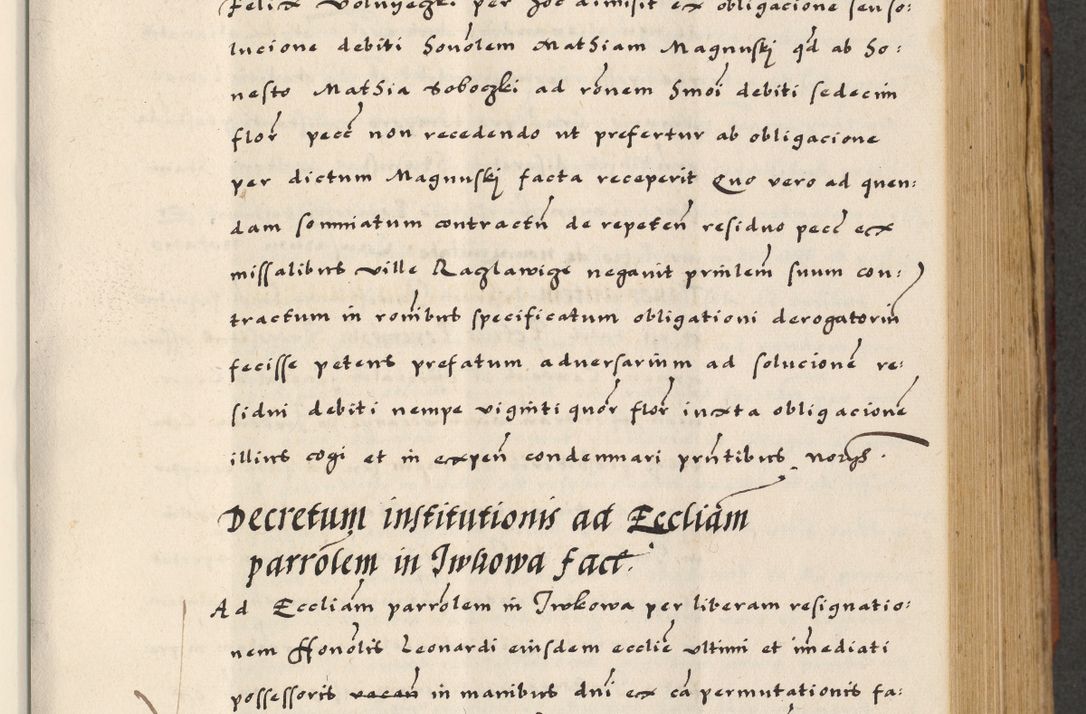 Felix Volnyeczki per hoc admisit ex obligacione seu so:
lucione debiti honolem Mathiam Magnuskj qd ab ho:
nesto Mathia Soboczki ad ronem hmoi debiti sedecim
flor pecc non recedendo ut prefertur ab obligacione
per dictum Magnuskj facta receperit Quo vero ad quen:
dam somniatum contractu de repeten residuo pecc ex
missalibus ville Raczlawicze neganit prinlem suum con:
tractum in ronibus specificatum obligationi derogatoriu
fecisse petens prefatum adversarium ad solucione re:
sidui debiti nempe viginti quor flor iuxta obligacione
illius cogi et in expen condemnari pntibus
Decretum institutionis ad Eccliam
parrolem in Iwkowa fact.
Ad Eccliam parrolem in Iwkowa per liberam resignatio:
nem Honolis Leonardi eiusdem ecclie ultimi et imediati
possessoris vacan in manibus dni ex ca permutationis fa: